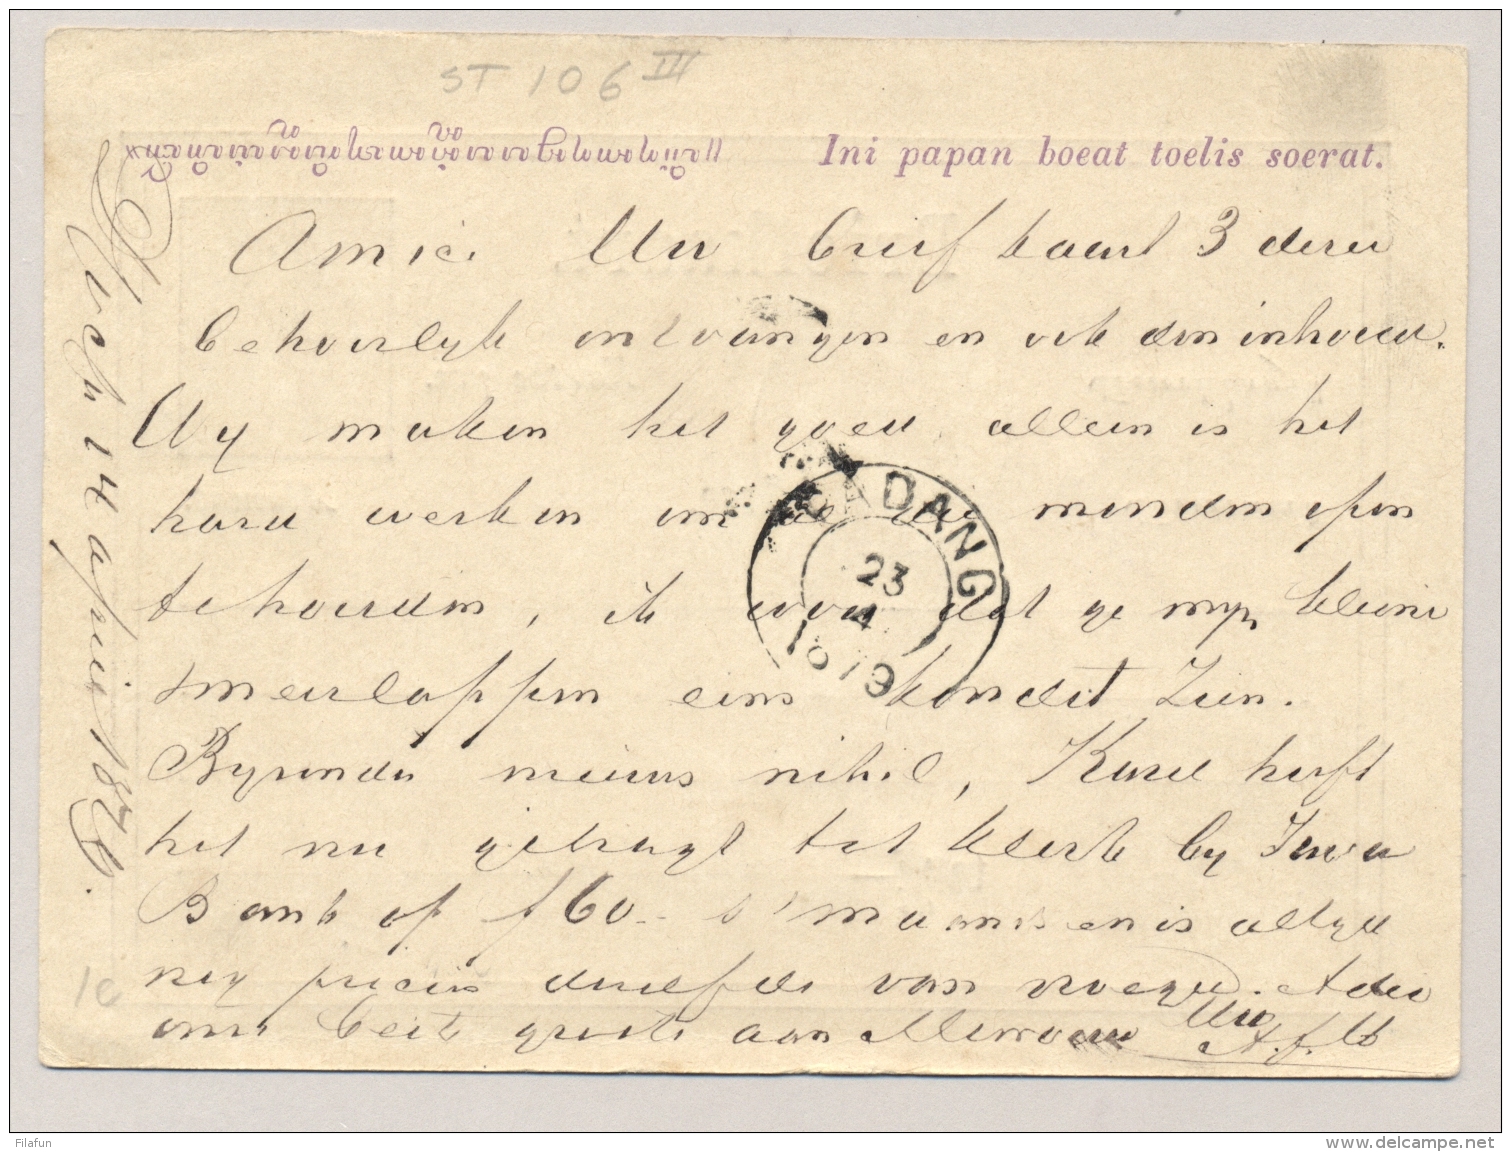 ST 106 III
Ini papan boeat toelis soerat.
Amice. Uw briefkaart 3 dezer
behoorlijk ontvangen en ook den inhoud.
Wij maken het goed, alleen is het
hard werken om de monden open
te houden, ik wou dat ge mijn kleine
smeerlappen eens kondet zien.
Byzonder nieuws nihil, Karel heeft
het nu gebragt tot klerk by Java
Bank op f 60.- 's maands en is altyd
nog precies dezelfde van vroeger. Adio
onze beste groete aan Mevrouw Uw
14 april 1879.
PADANG
23
4
1879
10
Filafun
www.delcampe.net